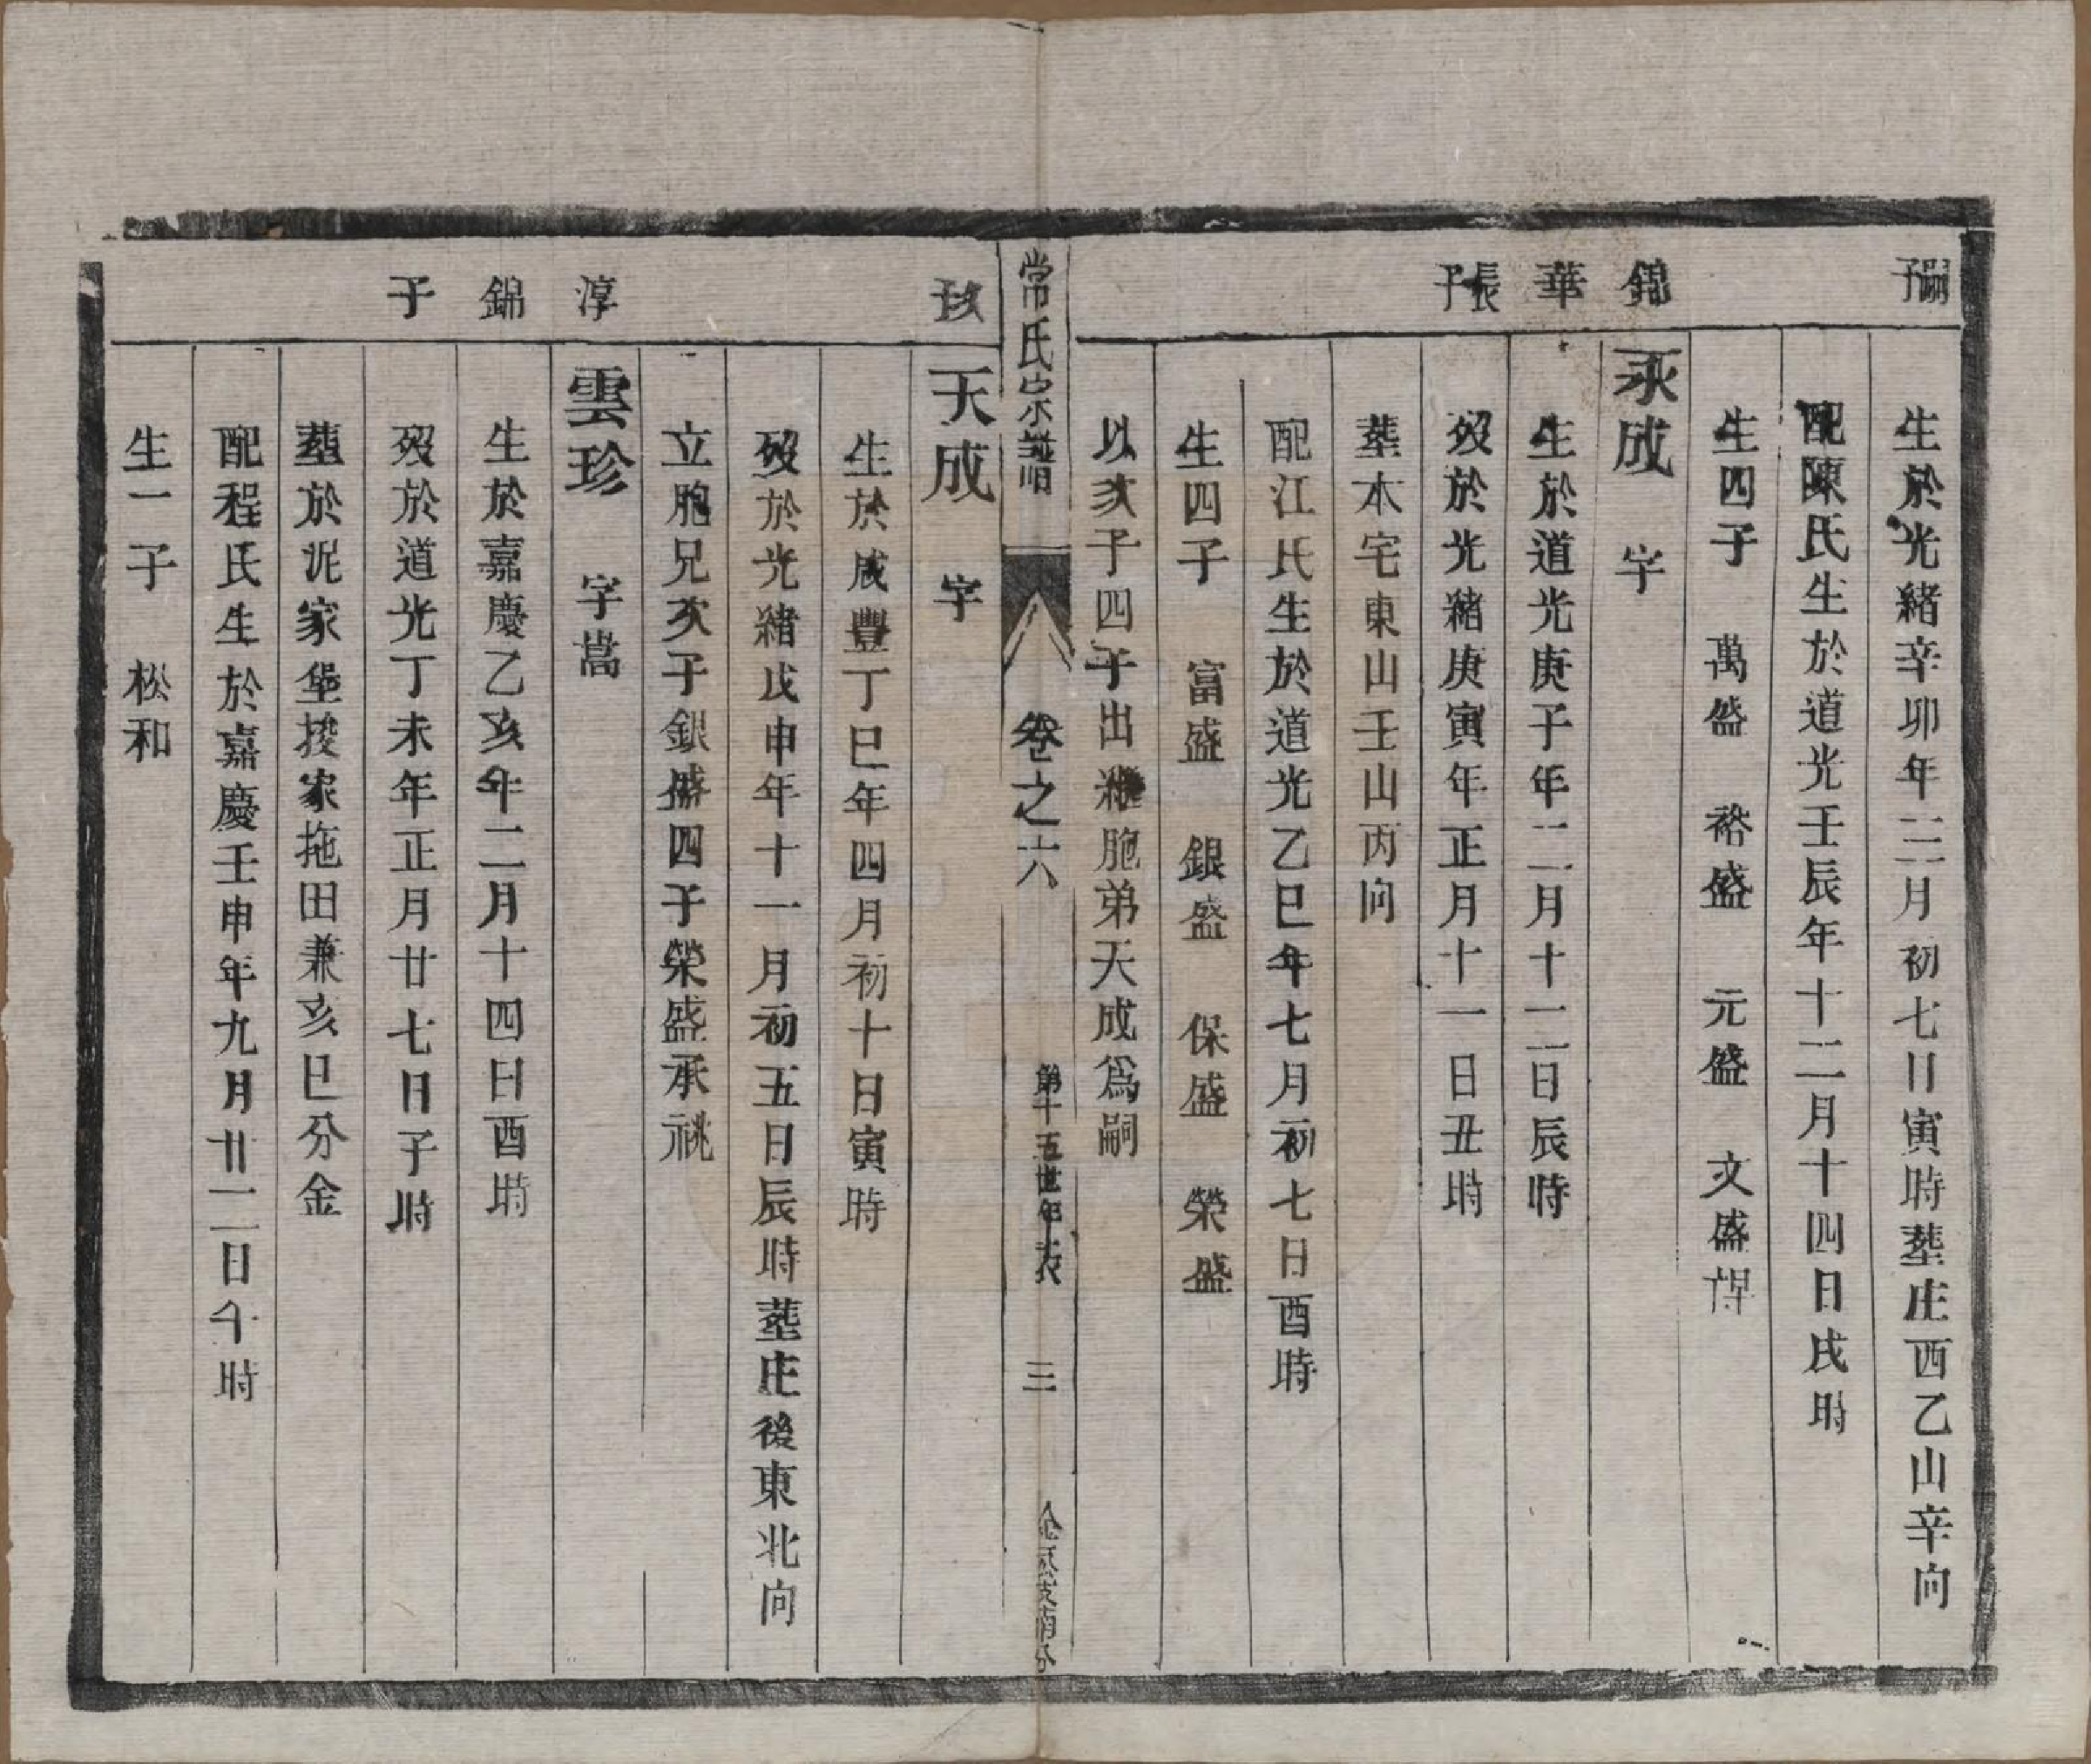 嗣子
生於光緒辛卯年三月初七日寅時塟庄西乙山辛向
配陳氏生於道光壬辰年十二月十四日戌時
生四子　萬盛　裕盛　元盛　文盛
錦華長子
永成　字
生於道光庚子年二月十二日辰時
歿於光緒庚寅年正月十一日丑時
塟本宅東山壬山丙向
配江氏生於道光乙巳年七月初七日酉時
生四子　富盛　銀盛　保盛　榮盛
以次子四子出繼胞弟天成爲嗣
常氏宗譜
卷之六
第十五世年表
三
次子
天成　字
生於咸豐丁巳年四月初十日寅時
歿於光緒戊申年十一月初五日辰時塟庄後東北向
立胞兄次子銀盛四子榮盛承祧
淳錦子
雲珍　字嵩
生於嘉慶乙亥年二月十四日酉時
歿於道光丁未年正月廿七日子時
塟於泥家堡拨家拖田兼亥巳分金
配程氏生於嘉慶壬申年九月廿二日午時
生一子　松和